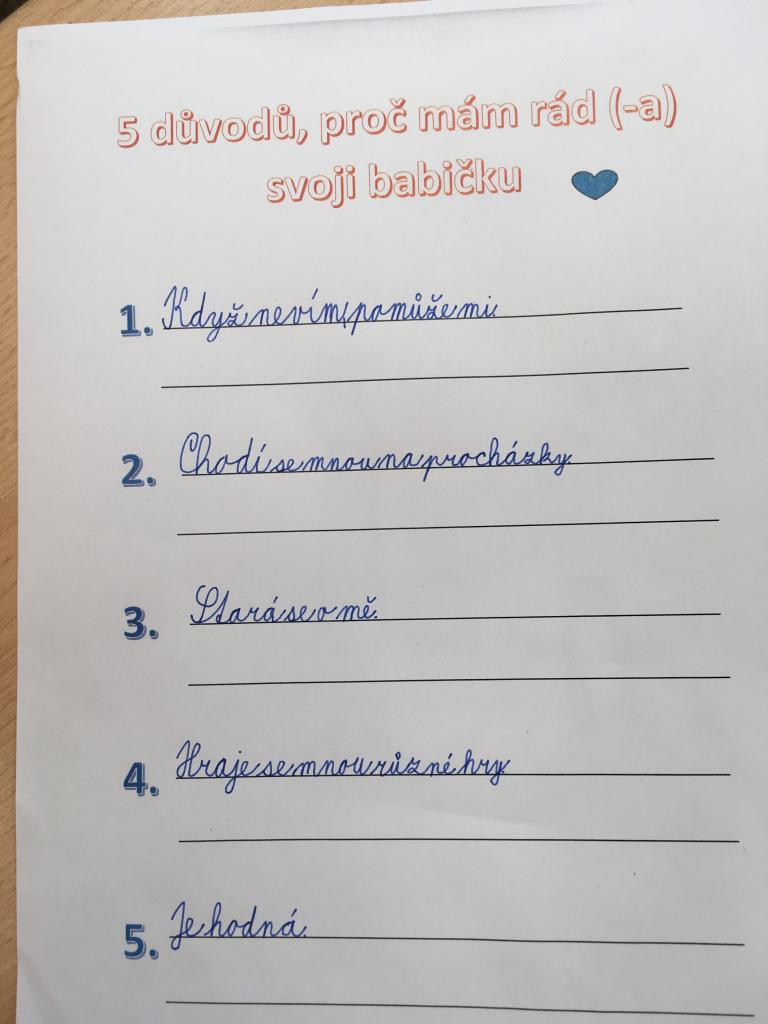 5 důvodů, proč mám rád (-a)
svoji babičku
1. Když nevím, pomůže mi.
2. Chodí se mnou na procházky.
3. Stará se o mě.
4. Hraje se mnou různé hry.
5. Je hodná.